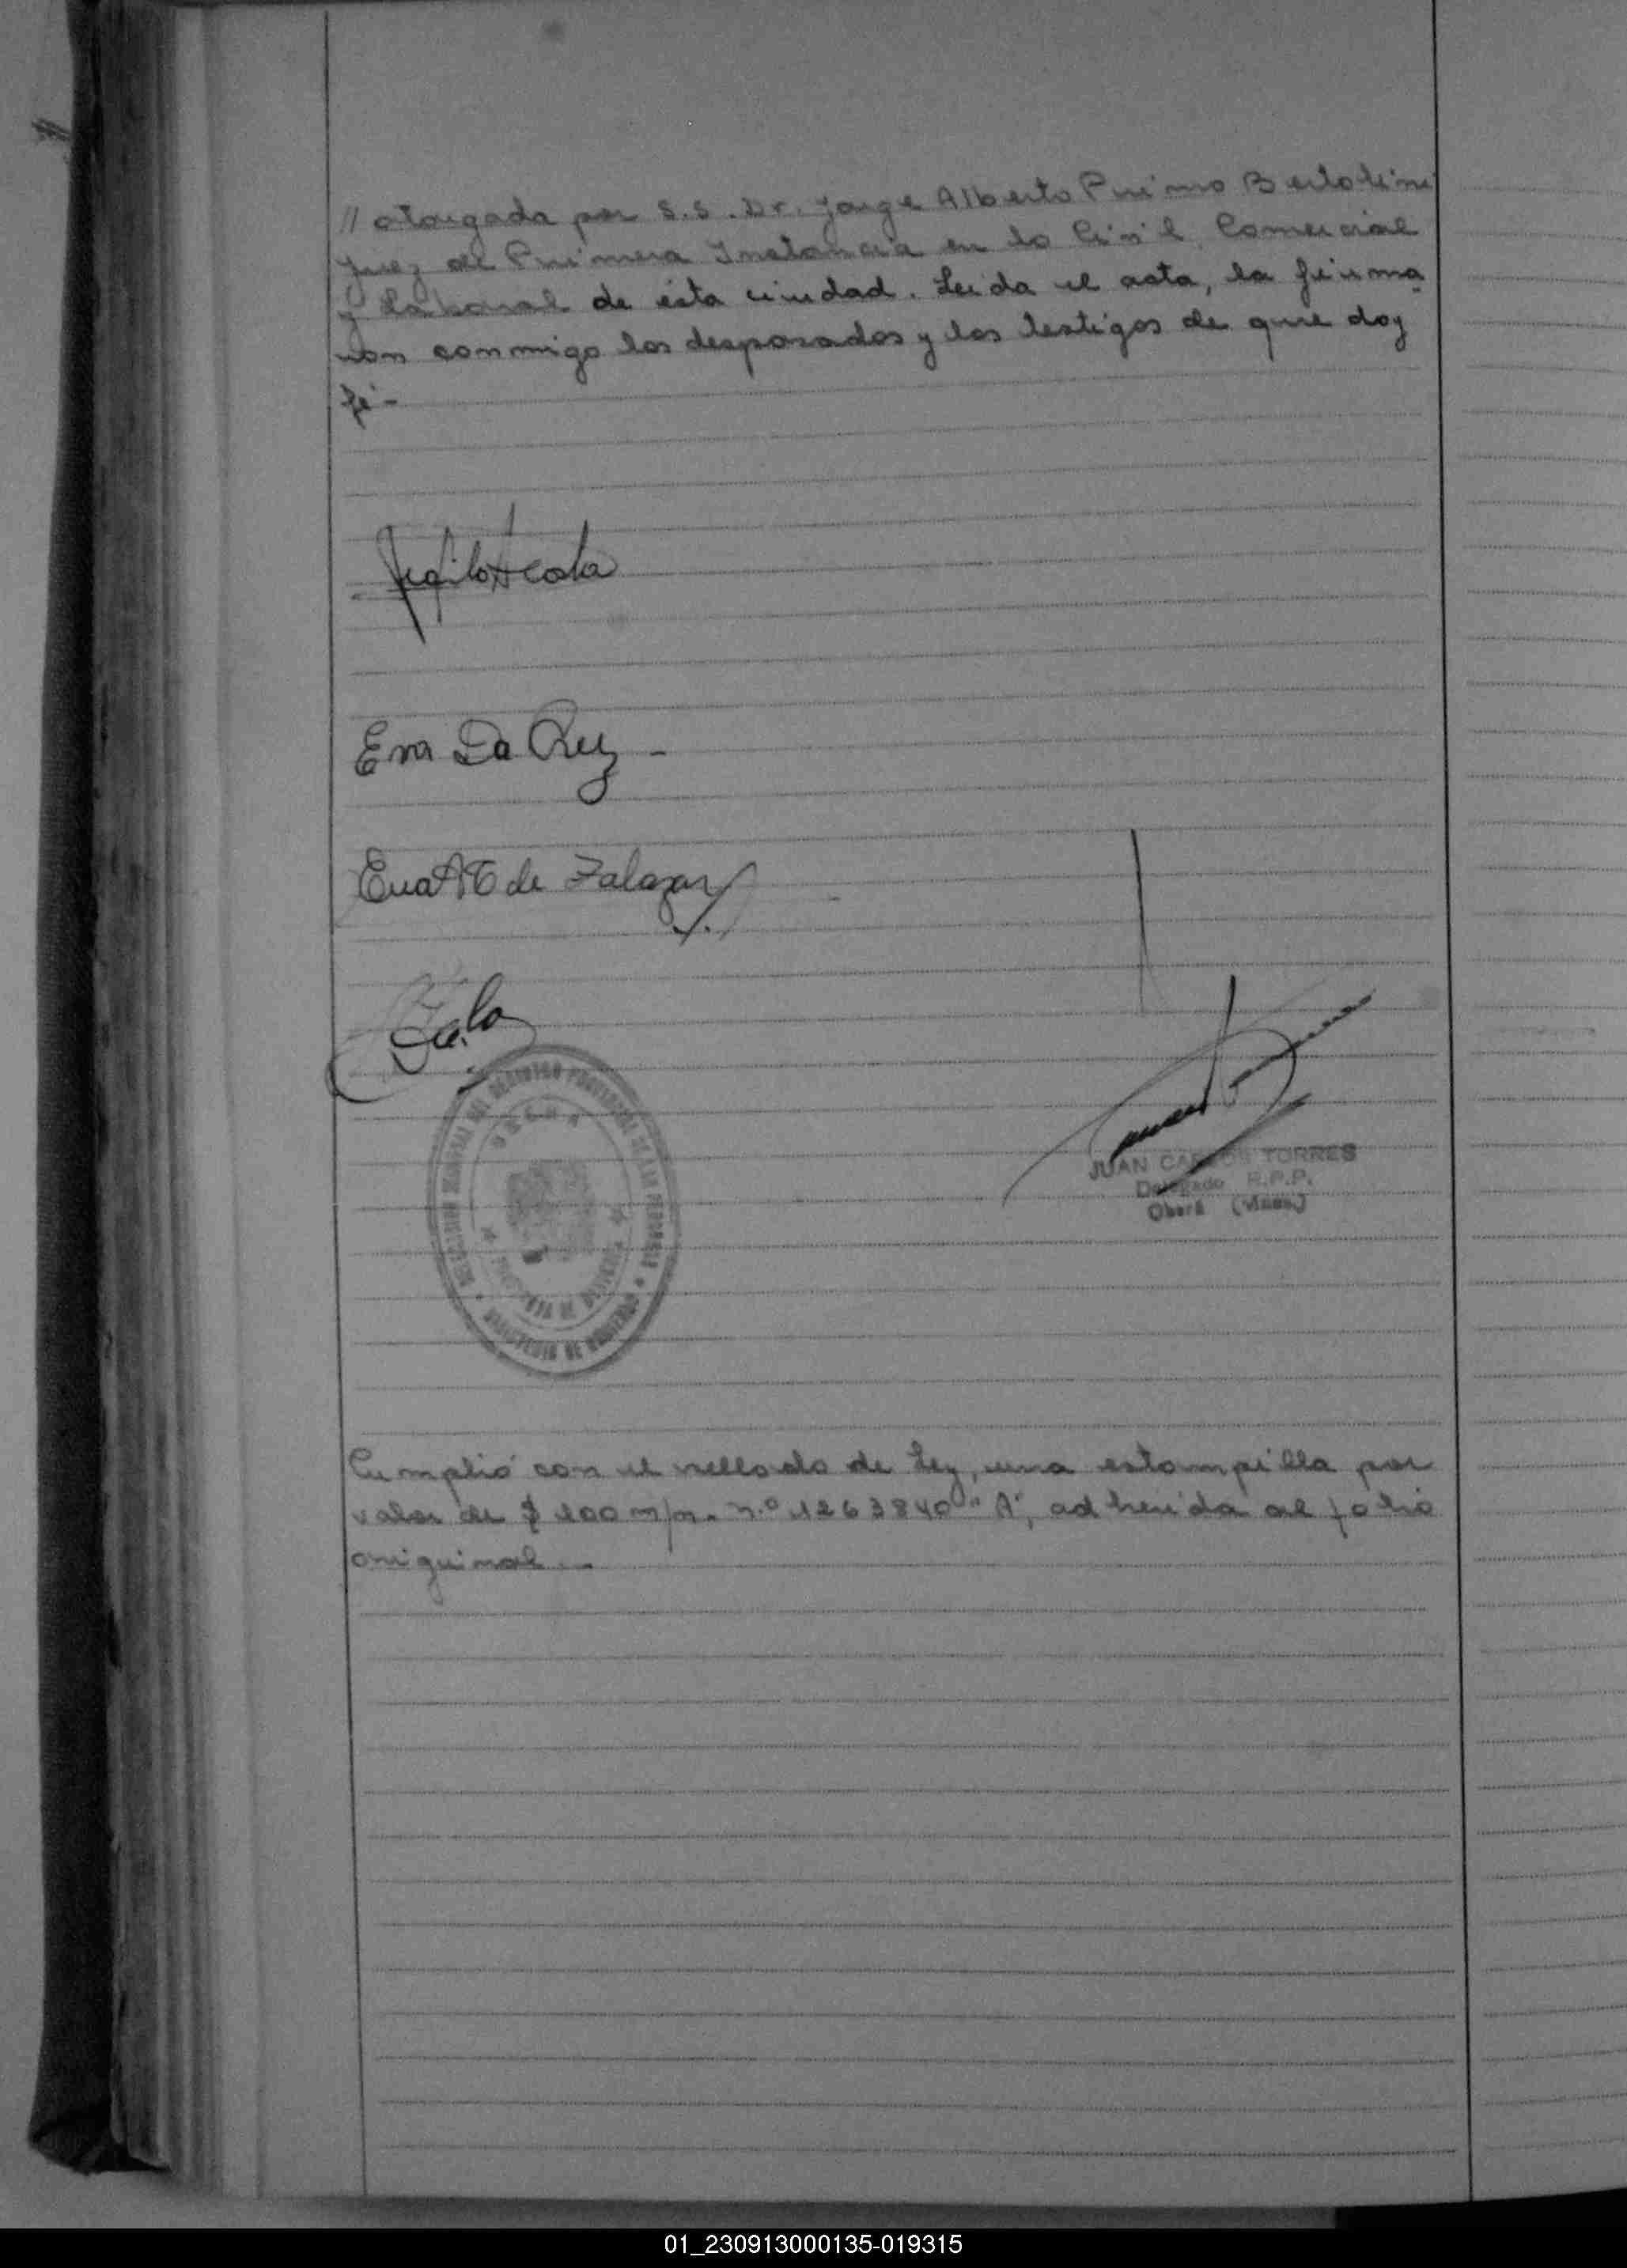 // otorgada por S.S. Dr. Jorge Alberto Primo Bertolini
Juez de Primera Instancia en lo Civil, Comercial
y Laboral de ésta ciudad. Leída el acta, la firma
ron conmigo los desposados y los testigos de que doy
fé-
Acosta
Ema Da Ruz -
Eva de Zalazar
JUAN CARLOS TORRES
Delegado R.P.P.
Oberá (Mnes.)
Cumplió con el sellado de Ley, una estampilla por
valor de $ 100 m/n. n.º 1263840 "A", adherida al folio
original. -
01_230913000135-019315